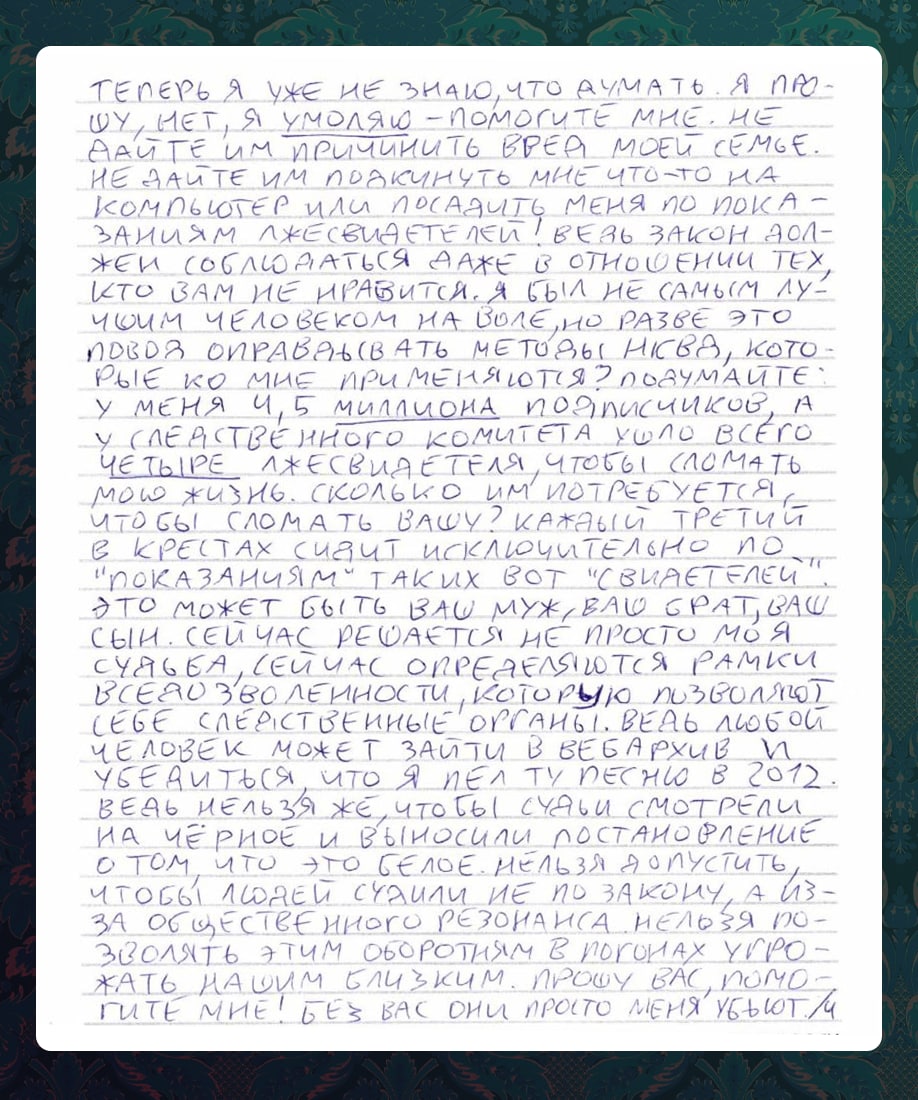 ТЕПЕРЬ Я УЖЕ НЕ ЗНАЮ, ЧТО ДУМАТЬ. Я ПРО-
ШУ, НЕТ, Я УМОЛЯЮ – ПОМОГИТЕ МНЕ. НЕ
ДАЙТЕ ИМ ПРИЧИНИТЬ ВРЕД МОЕЙ СЕМЬЕ.
НЕ ДАЙТЕ ИМ ПОДКИНУТЬ МНЕ ЧТО-ТО НА
КОМПЬЮТЕР ИЛИ ПОСАДИТЬ МЕНЯ ПО ПОКА-
ЗАНИЯМ ЛЖЕСВИДЕТЕЛЕЙ! ВЕДЬ ЗАКОН ДОЛ-
ЖЕН СОБЛЮДАТЬСЯ ДАЖЕ В ОТНОШЕНИИ ТЕХ,
КТО ВАМ НЕ НРАВИТСЯ. Я БЫЛ НЕ САМЫМ ЛУ-
ЧШИМ ЧЕЛОВЕКОМ НА ВОЛЕ, НО РАЗВЕ ЭТО
ПОВОД ОПРАВДЫВАТЬ МЕТОДЫ НКВД, КОТО-
РЫЕ КО МНЕ ПРИМЕНЯЮТСЯ? ПОДУМАЙТЕ:
У МЕНЯ 4,5 МИЛЛИОНА ПОДПИСЧИКОВ, А
У СЛЕДСТВЕННОГО КОМИТЕТА УШЛО ВСЕГО
ЧЕТЫРЕ ЛЖЕСВИДЕТЕЛЯ, ЧТОБЫ СЛОМАТЬ
МОЮ ЖИЗНЬ. СКОЛЬКО ИМ ПОТРЕБУЕТСЯ,
ЧТОБЫ СЛОМАТЬ ВАШУ? КАЖДЫЙ ТРЕТИЙ
В КРЕСТАХ СИДИТ ИСКЛЮЧИТЕЛЬНО ПО
"ПОКАЗАНИЯМ" ТАКИХ ВОТ "СВИДЕТЕЛЕЙ".
ЭТО МОЖЕТ БЫТЬ ВАШ МУЖ, ВАШ БРАТ, ВАШ
СЫН. СЕЙЧАС РЕШАЕТСЯ НЕ ПРОСТО МОЯ
СУДЬБА, СЕЙЧАС ОПРЕДЕЛЯЮТСЯ РАМКИ
ВСЕДОЗВОЛЕННОСТИ, КОТОРУЮ ПОЗВОЛЯЮТ
СЕБЕ СЛЕДСТВЕННЫЕ ОРГАНЫ. ВЕДЬ ЛЮБОЙ
ЧЕЛОВЕК МОЖЕТ ЗАЙТИ В ВЕБАРХИВ И
УБЕДИТЬСЯ, ЧТО Я ПЕЛ ТУ ПЕСНЮ В 2012.
ВЕДЬ НЕЛЬЗЯ ЖЕ, ЧТОБЫ СУДЬИ СМОТРЕЛИ
НА ЧЁРНОЕ И ВЫНОСИЛИ ПОСТАНОВЛЕНИЕ
О ТОМ, ЧТО ЭТО БЕЛОЕ. НЕЛЬЗЯ ДОПУСТИТЬ,
ЧТОБЫ ЛЮДЕЙ СУДИЛИ НЕ ПО ЗАКОНУ, А ИЗ-
ЗА ОБЩЕСТВЕННОГО РЕЗОНАНСА. НЕЛЬЗЯ ПО-
ЗВОЛЯТЬ ЭТИМ ОБОРОТНЯМ В ПОГОНАХ УГРО-
ЖАТЬ НАШИМ БЛИЗКИМ. ПРОШУ ВАС, ПОМО-
ГИТЕ МНЕ! БЕЗ ВАС ОНИ ПРОСТО МЕНЯ УБЬЮТ. /4